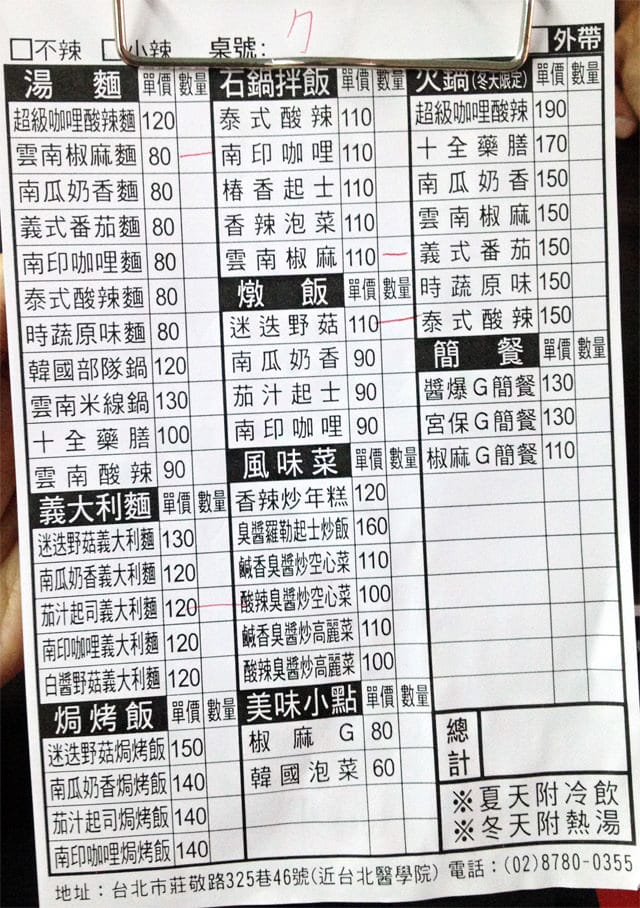 □不辣 □小辣 桌號：7 □外帶
湯麵 單價 數量
超級咖哩酸辣麵 120
雲南椒麻麵 80
南瓜奶香麵 80
義式番茄麵 80
南印咖哩麵 80
泰式酸辣麵 80
時蔬原味麵 80
韓國部隊鍋 120
雲南米線鍋 130
十全藥膳 100
雲南酸辣 90
義大利麵 單價 數量
迷迭野菇義大利麵 130
南瓜奶香義大利麵 120
茄汁起司義大利麵 120
南印咖哩義大利麵 120
白醬野菇義大利麵 120
焗烤飯 單價 數量
迷迭野菇焗烤飯 150
南瓜奶香焗烤飯 140
茄汁起司焗烤飯 140
南印咖哩焗烤飯 140
石鍋拌飯 單價 數量
泰式酸辣 110
南印咖哩 110
椿香起士 110
香辣泡菜 110
雲南椒麻 110
燉飯 單價 數量
迷迭野菇 110
南瓜奶香 90
茄汁起士 90
南印咖哩 90
風味菜 單價 數量
香辣炒年糕 120
臭醬羅勒起士炒飯 160
鹹香臭醬炒空心菜 110
酸辣臭醬炒空心菜 100
鹹香臭醬炒高麗菜 110
酸辣臭醬炒高麗菜 100
美味小點 單價 數量
椒麻G 80
韓國泡菜 60
火鍋(冬天限定) 單價 數量
超級咖哩酸辣 190
十全藥膳 170
南瓜奶香 150
雲南椒麻 150
義式番茄 150
時蔬原味 150
泰式酸辣 150
簡餐 單價 數量
醬爆G簡餐 130
宮保G簡餐 130
椒麻G簡餐 110
總計
※夏天附冷飲
※冬天附熱湯
地址：台北市莊敬路325巷46號(近台北醫學院) 電話：(02)8780-0355